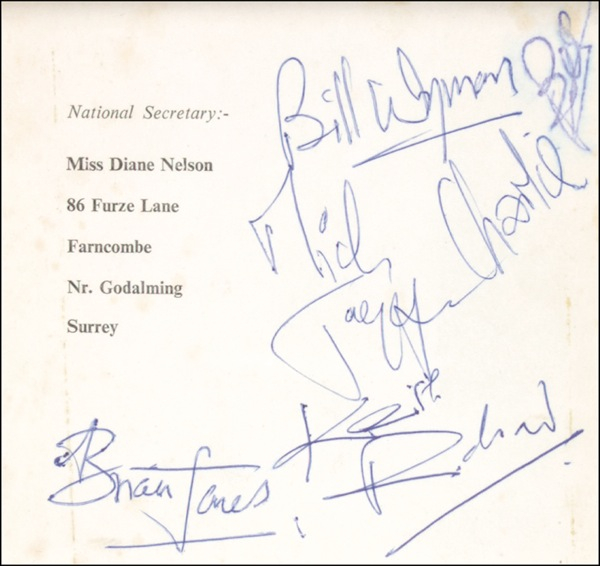 National Secretary:-
Miss Diane Nelson
86 Furze Lane
Farncombe
Nr. Godalming
Surrey
Bill Wyman
Charlie
Mick
Jagger
Keith
Richard
Brian Jones